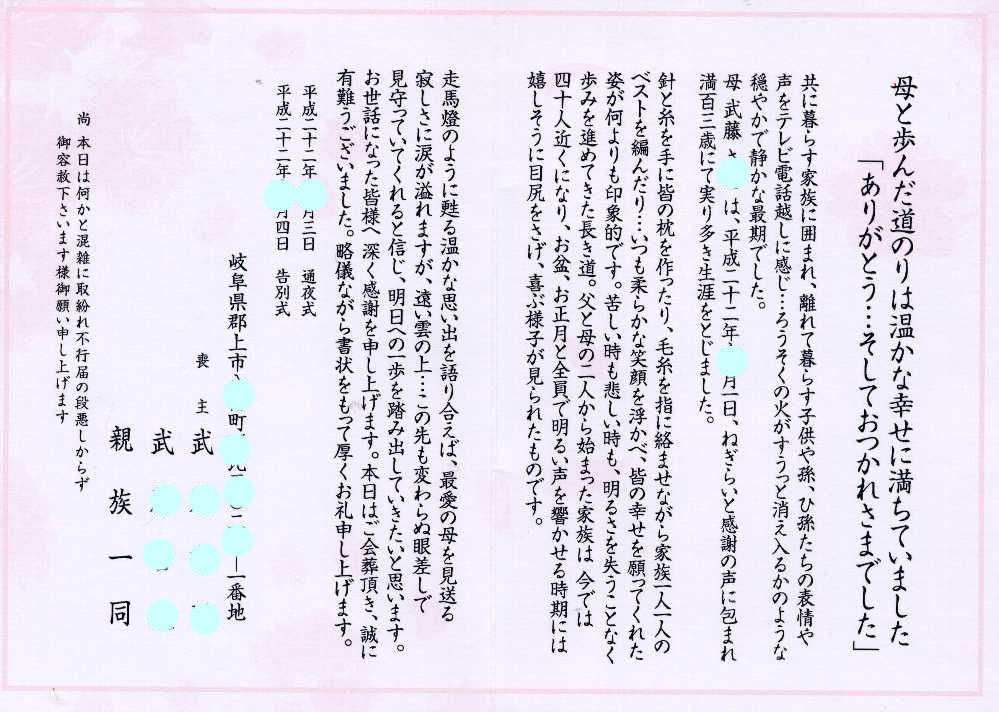 母と歩んだ道のりは温かな幸せに満ちていました
「ありがとう…そしておつかれさまでした」
共に暮らす家族に囲まれ、離れて暮らす子供や孫、ひ孫たちの表情や
声をテレビ電話越しに感じ…ろうそくの火がすうっと消え入るかのような
穏やかで静かな最期でした。
母 武藤 さ は、平成二十二年 月一日、ねぎらいと感謝の声に包まれ
満百三歳にて実り多き生涯をとじました。
針と糸を手に皆の枕を作ったり、毛糸を指に絡ませながら家族一人一人の
ベストを編んだり…いつも柔らかな笑顔を浮かべ、皆の幸せを願ってくれた
姿が何よりも印象的です。苦しい時も悲しい時も、明るさを失うことなく
歩みを進めてきた長き道。父と母の二人から始まった家族は 今では
四十人近くになり、お盆、お正月と全員で明るい声を響かせる時期には
嬉しそうに目尻をさげ、喜ぶ様子が見られたものです。
走馬燈のように甦る温かな思い出を語り合えば、最愛の母を見送る
寂しさに涙が溢れますが、遠い雲の上…この先も変わらぬ眼差しで
見守っていてくれると信じ、明日への一歩を踏み出していきたいと思います。
お世話になった皆様へ 深く感謝を申し上げます。本日はご会葬頂き、誠に
有難うございました。略儀ながら書状をもって厚くお礼申し上げます。
平成二十二年 月三日 通夜式
平成二十二年 月四日 告別式
岐阜県郡上市 町 一番地
喪主 武
武
親族一同
尚 本日は何かと混雑に取紛れ不行届の段悪しからず
御容赦下さいます様御願い申し上げます